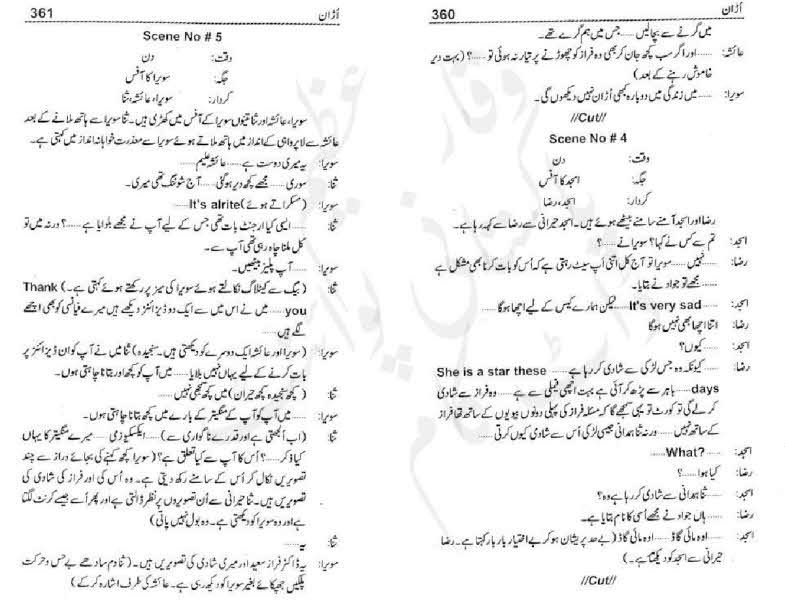 360
اُڑان
میں گرنے سے بچالیں ...... جس میں ہم گرے تھے۔
عائشہ: ...... اور اگر سب کچھ جان کر بھی وہ فراز کو چھوڑنے پر تیار نہ ہوئی تو ...... ؟ (بہت دیر
خاموش رہنے کے بعد)
سویرا: ...... میں زندگی میں دوبارہ کبھی اُڑان نہیں دیکھوں گی۔
//Cut//
Scene No # 4
وقت: دن
جگہ: امجد کا آفس
کردار: امجد، رضا
رضا اور امجد آمنے سامنے بیٹھے ہوئے ہیں۔ امجد حیرانی سے رضا سے کہہ رہا ہے۔
امجد: تم سے کس نے کہا؟ سویرا نے ...... ؟
رضا: ...... نہیں ...... سویرا تو آج کل اتنی اَپ سیٹ رہتی ہے کہ اُس کو بات کرنا بھی مشکل ہے
...... مجھے تو جواد نے بتایا۔
امجد: ...... It's very sad ...... لیکن ہمارے کیس کے لیے اچھا ہوگا ......
رضا: اتنا اچھا بھی نہیں ہوگا
امجد: کیوں؟
رضا: ...... کیونکہ وہ جس لڑکی سے شادی کر رہا ہے ...... She is a star these
days ...... باہر سے پڑھ کر آئی ہے بہت اچھی فیملی سے ہے ...... وہ فراز سے شادی
کرلے گی تو کورٹ تو یہی سمجھے گا کہ مسئلہ فراز کی پہلی دونوں بیویوں کے ساتھ تھا فراز
کے ساتھ نہیں ...... ورنہ ثنا ہمدانی جیسی لڑکی اُس سے شادی کیوں کرتی ......
امجد: ...... What?
رضا: کیا ہوا ...... ؟
امجد: ثنا ہمدانی سے شادی کر رہا ہے وہ؟
رضا: ...... ہاں جواد نے مجھے اُسی کا نام بتایا ہے۔
امجد: ...... اوہ مائی گاڈ ...... اوہ مائی گاڈ (بے حد پریشان ہو کر بے اختیار بار بار کہتا ہے۔ رضا
حیرانی سے امجد کو دیکھتا ہے۔)
//Cut//
361
اُڑان
Scene No # 5
وقت: دن
جگہ: سویرا کا آفس
کردار: سویرا، عائشہ، ثنا
سویرا، عائشہ اور ثنا تینوں سویرا کے آفس میں کھڑی ہیں۔ ثنا سویرا سے ہاتھ ملانے کے بعد
عائشہ سے لاپرواہی کے انداز میں ہاتھ ملاتے ہوئے سویرا سے معذرت خواہانہ انداز میں کہتی ہے۔
سویرا: یہ میری دوست ہے ...... عائشہ علیم ......
ثنا: سوری ...... مجھے کچھ دیر ہو گئی ...... آج شوٹنگ تھی میری۔
سویرا: (مسکراتے ہوئے) It's alrite ......
ثنا: ...... ایسی کیا ارجنٹ بات تھی جس کے لیے آپ نے مجھے بلوایا ہے ...... ؟ ورنہ میں تو
کل ملنا چاہ رہی تھی آپ سے۔
سویرا: ...... آپ پلیز بیٹھیں۔
ثنا: (بیگ سے کیٹلاگ نکالتے ہوئے سویرا کی میز پر رکھتے ہوئے کہتی ہے۔) Thank
you ...... میں نے اس میں سے ایک دو ڈیزائنز دیکھے ہیں میرے فیانسی کو بھی اچھے
لگے ہیں ......
سویرا: (سویرا اور عائشہ ایک دوسرے کو دیکھتی ہیں۔ سنجیدہ) ثنا میں نے آپ کو ان ڈیزائنز پر
بات کرنے کے لیے یہاں نہیں بلایا ...... میں آپ کو کچھ اور بتانا چاہتی ہوں۔
ثنا: (کچھ سنجیدہ کچھ حیران) میں کچھ سمجھی نہیں ......
سویرا: ...... میں آپ کو آپ کے منگیتر کے بارے میں کچھ بتانا چاہتی ہوں۔
ثنا: (اب اُلجھتی ہے اور قدرے ناگواری سے) ...... ایکسکیوز می ...... میرے منگیتر کا یہاں
کیا ذکر ...... ؟ اُس کا آپ سے کیا تعلق ہے؟ (سویرا کچھ کہنے کی بجائے دراز سے چند
تصویریں نکال کر اُس کے سامنے رکھ دیتی ہے۔ وہ اُس کی اور فراز کی شادی کی
تصویریں ہیں۔ ثنا حیرانی سے اُن تصویروں پر نظر ڈالتی ہے اور پھر اُسے جیسے کرنٹ لگتا
ہے اور وہ سویرا کو دیکھتی ہے۔ وہ بول نہیں پاتی)
ثنا: یہ ......
سویرا: یہ ڈاکٹر فراز سعید اور میری شادی کی تصویریں ہیں۔ (ثنا دم سادھے بے حس و حرکت
پلکیں جھپکائے بغیر سویرا کو دیکھ رہی ہے۔ عائشہ کی طرف اشارہ کر کے)